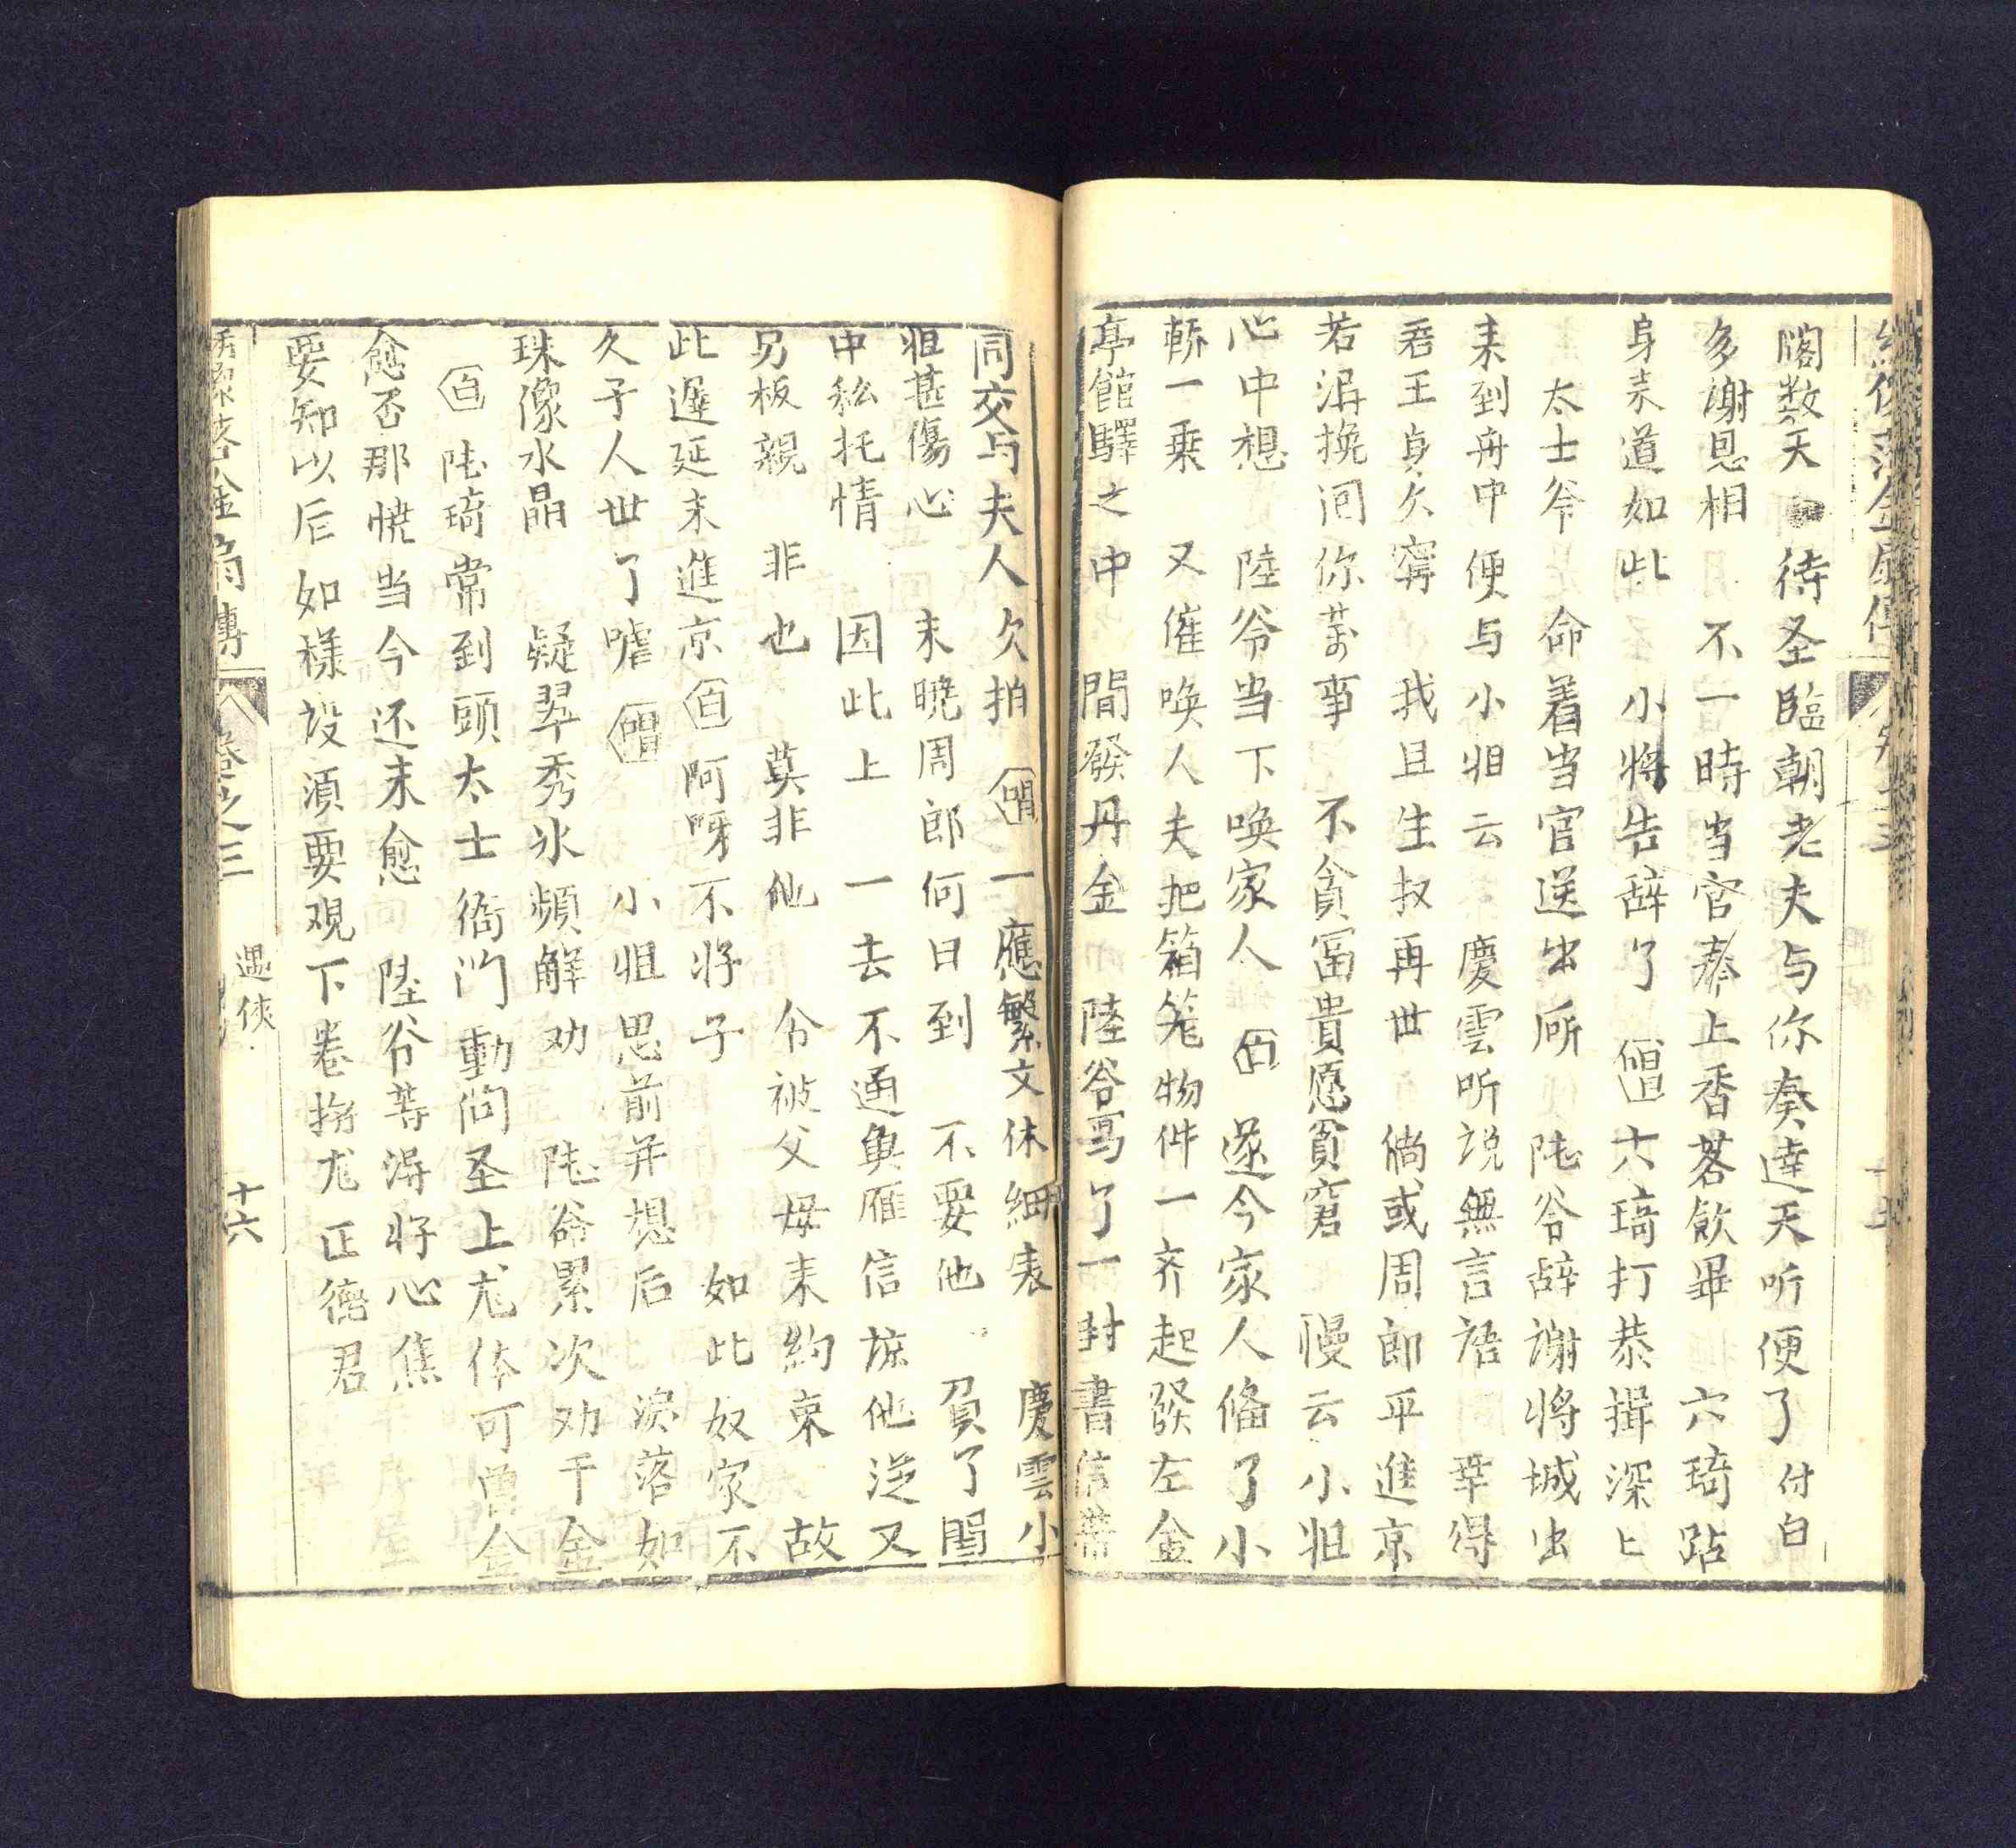 閣数天 待圣臨朝老夫与你奏達天听便了 付白
多謝恩相 不一時当官奉上香茗飲畢 六琦跕
身来道如此 小将告辞了 唱 六琦打恭揖深匕
太士爷 命着当官送出所 陆爷辞謝将城出
来到舟中便与小姐云 慶雲听说無言語 幸得
君王身欠寧 我且生叔再世 倘或周郎平進京
若淂挽囘你萬事 不貪冨貴愿貧窘 慢云小姐
心中想 陸爷当下唤家人 白 遂今家人俻了小
轎一乗 又催唤人夫把箱笼物件一齐起發左金
亭館驛之中 間發丹金 陸爷写了一封書信帶
同交与夫人欠拍 唱 一應繁文休細表 慶雲小
姐甚傷心 未曉周郎何日到 不要他 負了閨
中私托情 因此上 一去不通魚雁信 諒他逆又
另板親 非也 莫非他 令被父母来約束 故
此遲延未進京 白 阿呀不将子 如此奴家不
久子人世了嘘 唱 小姐思前并想后 淚落如
珠像水晶 疑翠秀氷頻解劝 陆爷累次劝千金
白 陆琦常到頭太士衙门動问圣上尤体可曾金
愈否那恍当今还未愈 陸爷等淂好心焦
要知以后如様設 須要观下卷掰尤正德君
落金扇傳 卷之三 遇俠 十六